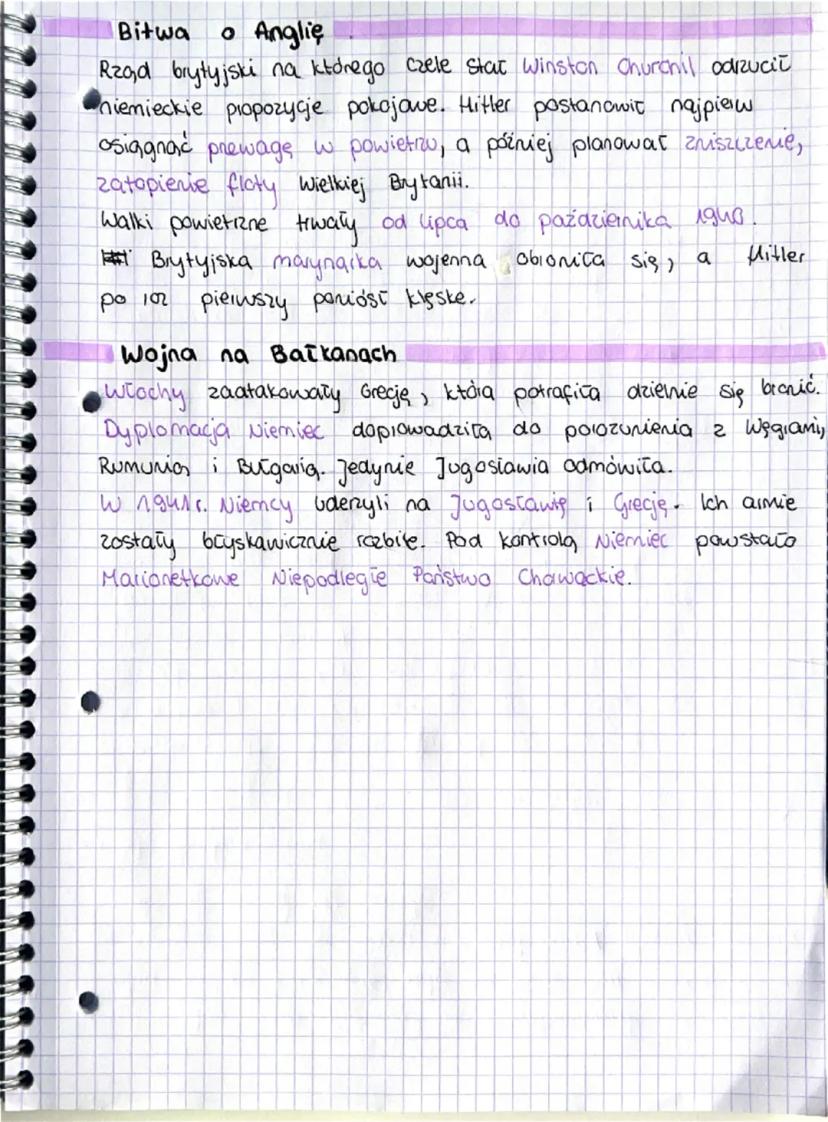 Bitwa o Anglię
Rząd brytyjski na którego czele stał Winston Churchil odrzucił
niemieckie propozycje pokojowe. Hitler postanowił najpierw
osiągnąć prewagę w powietrzu, a później planował zniszczenie,
zatopienie floty Wielkiej Brytanii.
Walki powietrzne trwały od lipca do października
Brytyjska marynarka wojenna obroniła się, a Hitler
po raz pierwszy poniósł klęske.
Wojna na Bałkanach
Włochy zaatakowały Grecję, która potrafiła dzielnie się bronić.
Dyplomacja Niemiec doprowadziła do porozumienia z Węgrami,
Rumunią i Bułgarią. Jedynie Jugosławia odmówiła.
W 1941r. Niemcy uderzyli na Jugosławię i Grecję. Ich armie
zostały błyskawicznie rozbite. Pod kontrolą Niemiec powstało
Marionetkowe Niepodległe Państwo Chowackie.